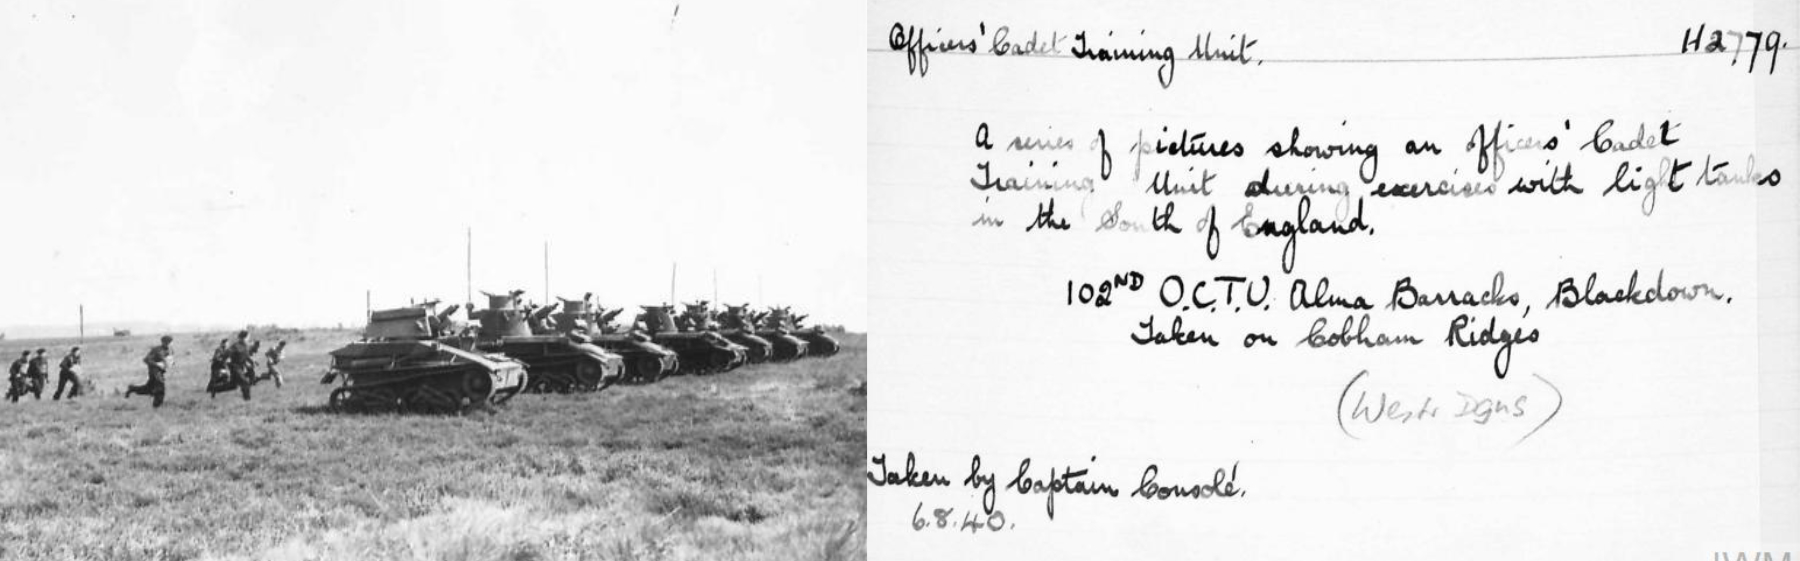 Officers' Cadet Training Unit. H2779.
A series of pictures showing an Officers' Cadet
Training Unit during exercises with light tanks
in the South of England.
102ND O.C.T.U. Alma Barracks, Blackdown.
Taken on Cobham Ridges
(Westr Dgns)
Taken by Captain Consolé.
6.8.40.
IWM